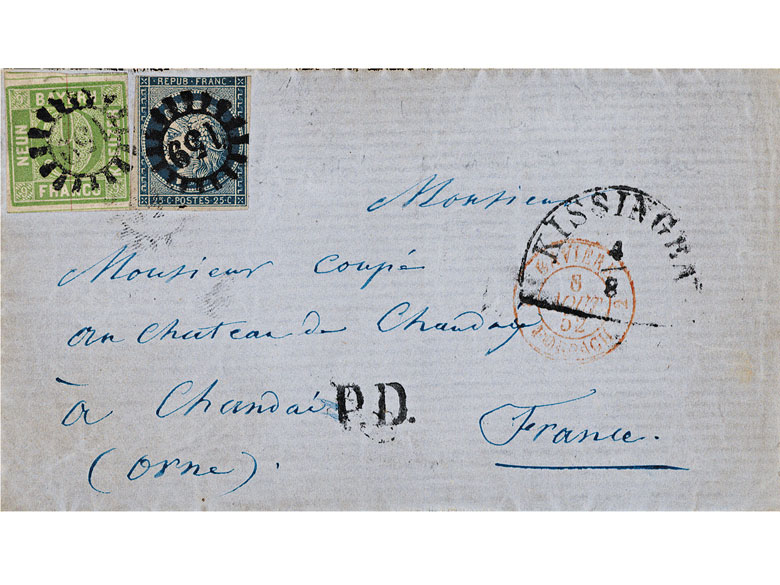 BAYERN
NEUN
FRANCO
9
9
REPUB FRANC
25·C·POSTES·25·C
159
Monsieur
KISSINGEN
4/8
Monsieur Coupé
8
AOUT
52
FORBACH
au chateau de Chanday
à Chandai
P.D.
France.
(Orne).